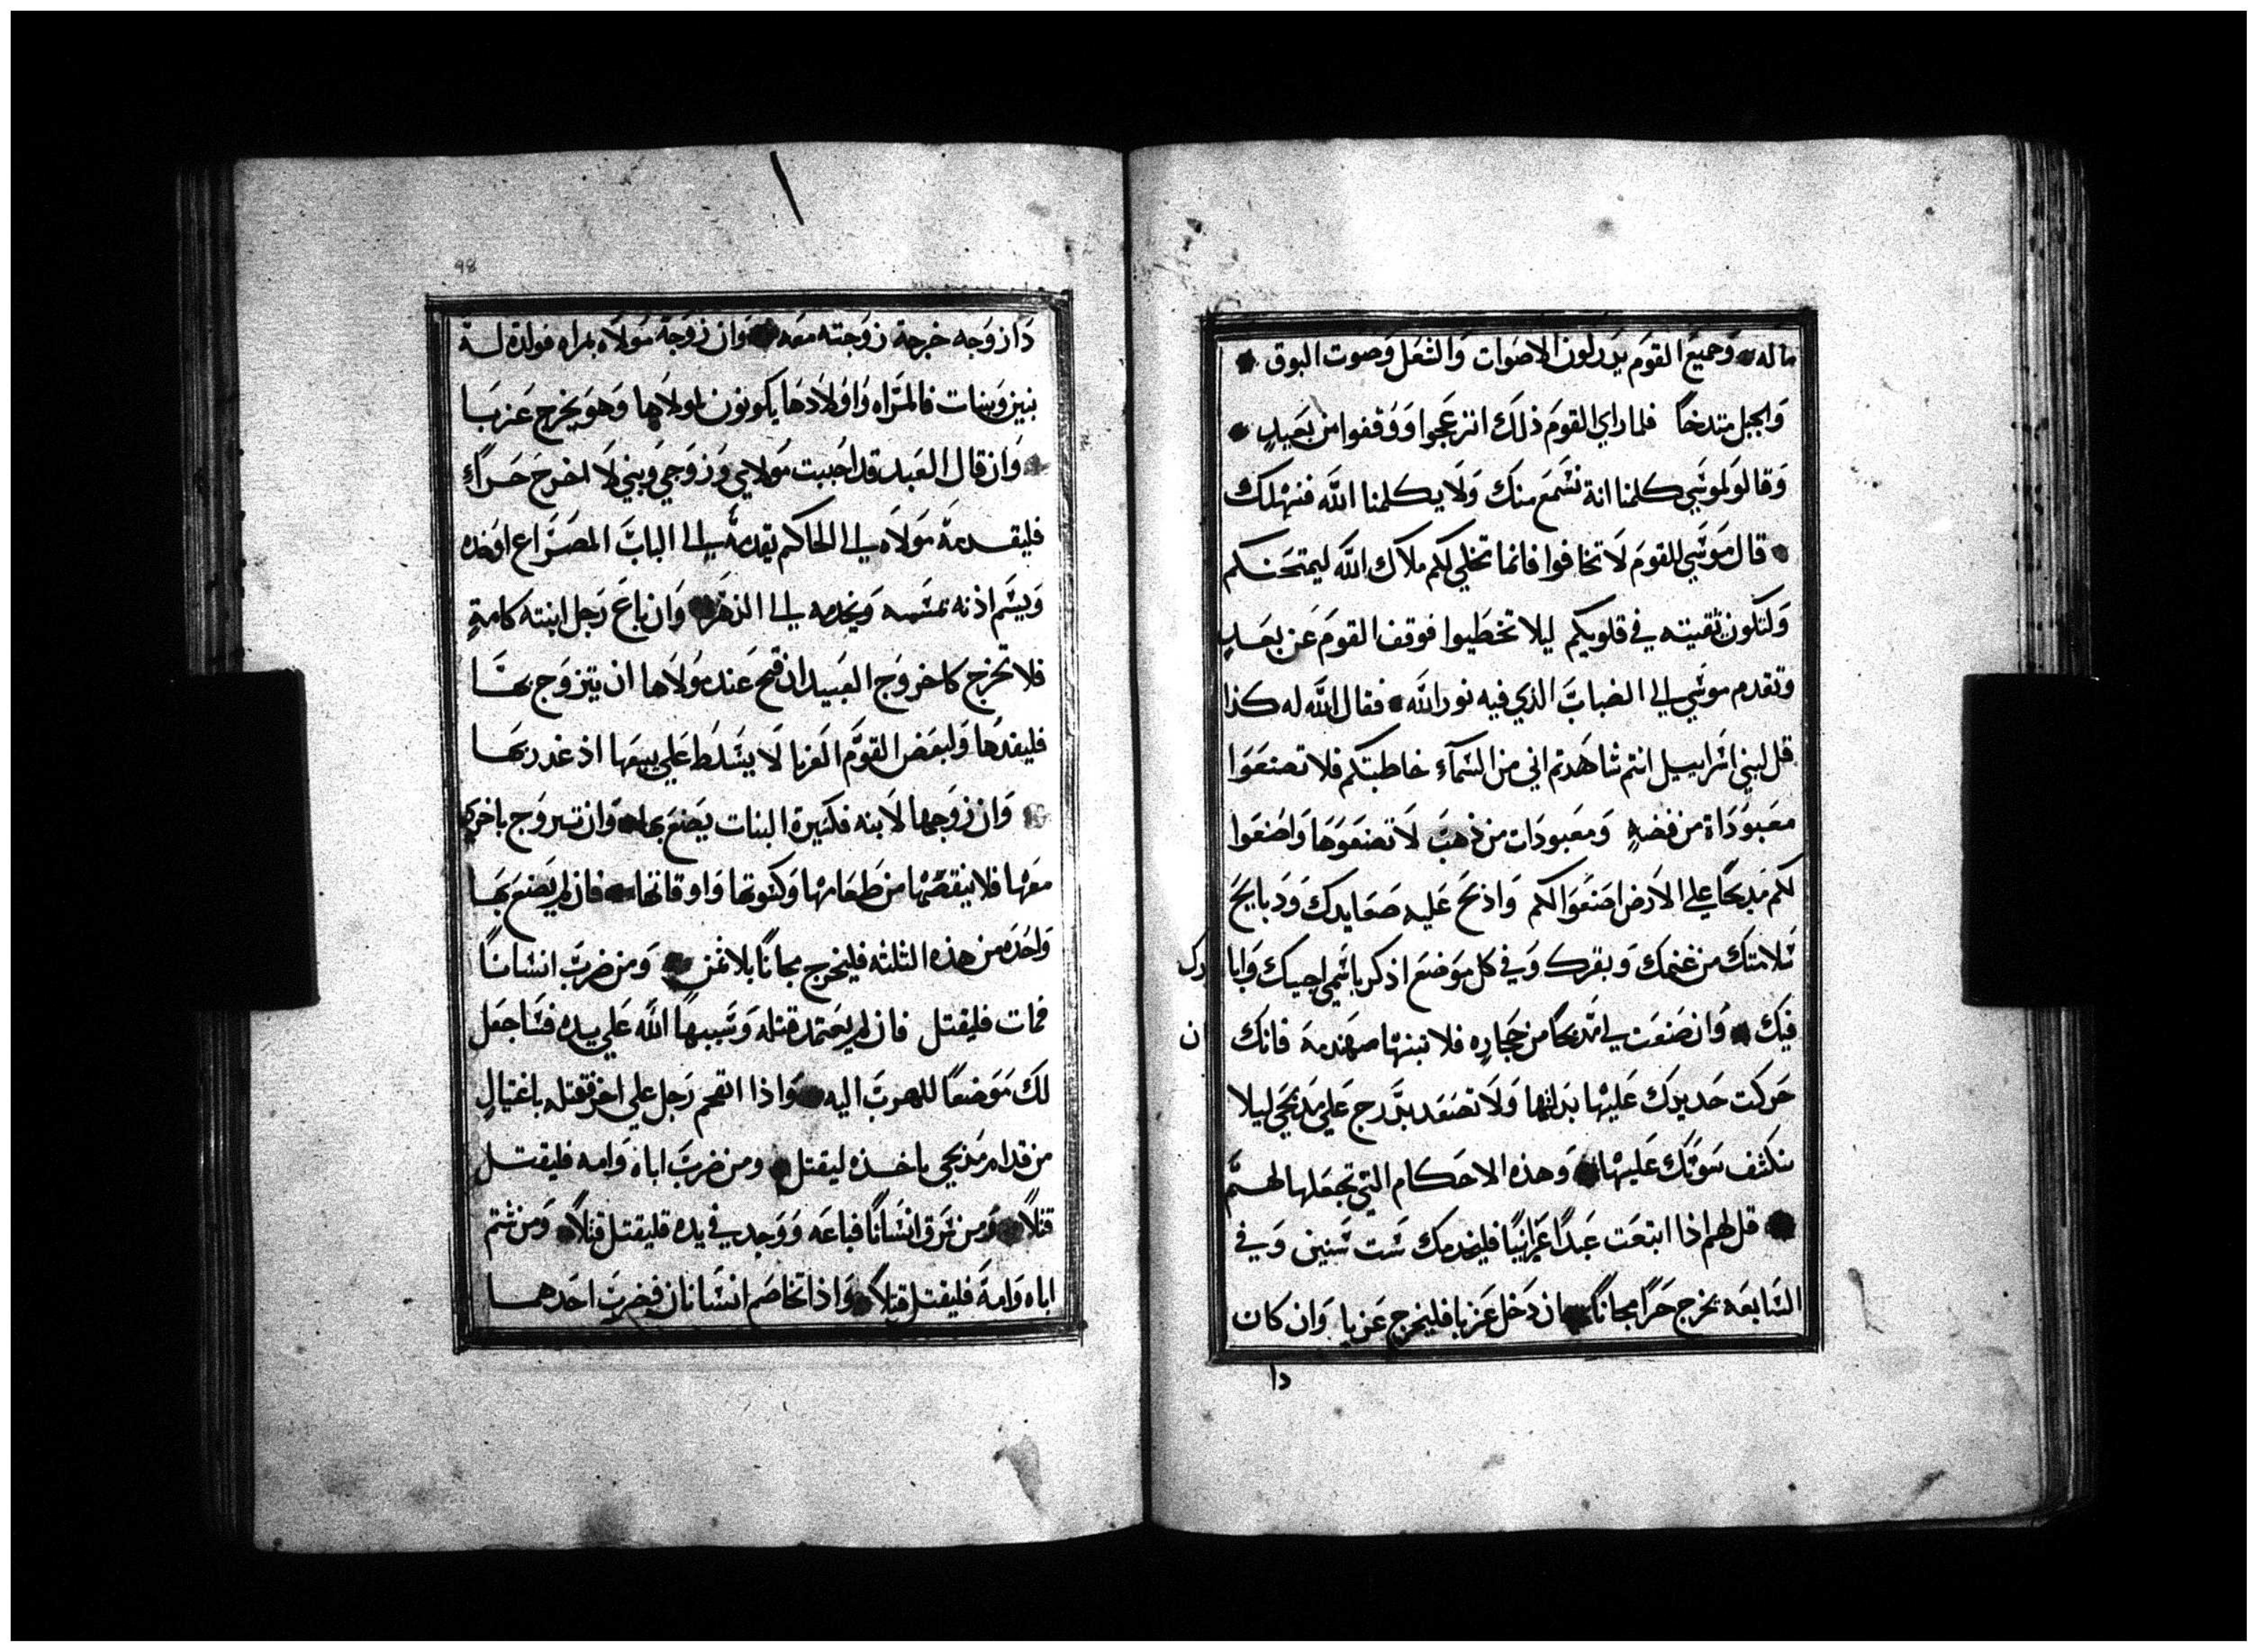 ماله وجميع القوم يدركون الاصوات والشعل وصوت البوق
والجبل متدخنًا فلما راي القوم ذلك انزعجوا ووقفوا من بعيدٍ
وقالو لموسي كلمنا انة نسمع منك ولا يكلمنا الله فنهلك
قال موسي للقوم لا تخافوا فانما تجلي لكم ملاك الله ليمتحنكم
ولتكون تقيته في قلوبكم ليلا تخطيوا فوقف القوم عن بعدٍ
وتقدم موسي الي الضباب الذي فيه نور الله فقال الله له كذا
قل لبني اسراييل انتم شاهدتم اني من السمآء خاطبتكم فلا تصنعوا
معبوداة من فضةٍ ومعبودات من ذهب لا تصنعوها واصنعوا
لكم مذبحًا علي الارض اصنعوا لكم واذبح عليه صعايدك ودبايح
سلامتك من غنمك وبقرك وفي كل موضع اذكر باسمي اجيك وابا
رك
فيك وان صنعت لي مذبحًا من حجاره فلا تبنها مهندمة فانك
ان
حركت حديدك عليها بدلتها ولا تصعد بدرج علي مذبحي ليلا
تنكشف سوتك عليها وهذه الاحكام التي تجعلها لهم
قل لهم اذا ابتعت عبدًا عبرانيًا فليخدمك ست سنين وفي
السابعه يخرج حرًا مجانًا ان دخل عزبا فليخرج عزبا وان كان
دا
98
دا زوجه خرجة زوجته معه وان زوجة مولاه بمراه فولدة لـه
بنين وبنات فالمراه واولادها يكونون لمولاها وهو يخرج عزبا
وان قال العبد قد احببت مولاي وزوجي وبني لا اخرج حرًا
فليقدمة مولاه الي الحاكم يقدمه الي الباب المصراع اوخده
ويسم اذنه نمسه ويخدمه الي الدهر وان باع رجل ابنته كامةٍ
فلا تخرج كاخروج العبيد ان قبح عند مولاها ان يتزوج بها
فليفدها ولبعض القوم الغربا لا يسلط علي بيعها اذ غدر بها
وان زوجها لابنه فكسيرة البنات يصنع بها وان تزوج باخري
معها فلا ينقصها من طعامها وكسوتها واوقاتها فان لم يصنع بها
واحده من هذه الثلثه فليخرج مجانًا بلا ثمن ومن ضرب انسانًا
فمات فليقتل فان لم يعتمد قتله وسببها الله علي يده فساجعل
لك موضعًا للهرب اليه واذا اقحم رجل علي اخر فقتله باغتيالٍ
من قدام مذبحي باخذه ليقتل ومن ضرب اباه وامه فليقتـل
قتلاً ومن سرق انسانًا فباعه ووجد في يده فليقتل قتلاً ومن شتم
اباه وامة فليقتل قتلاً واذا تخاصم انسانان فضرب احدهما